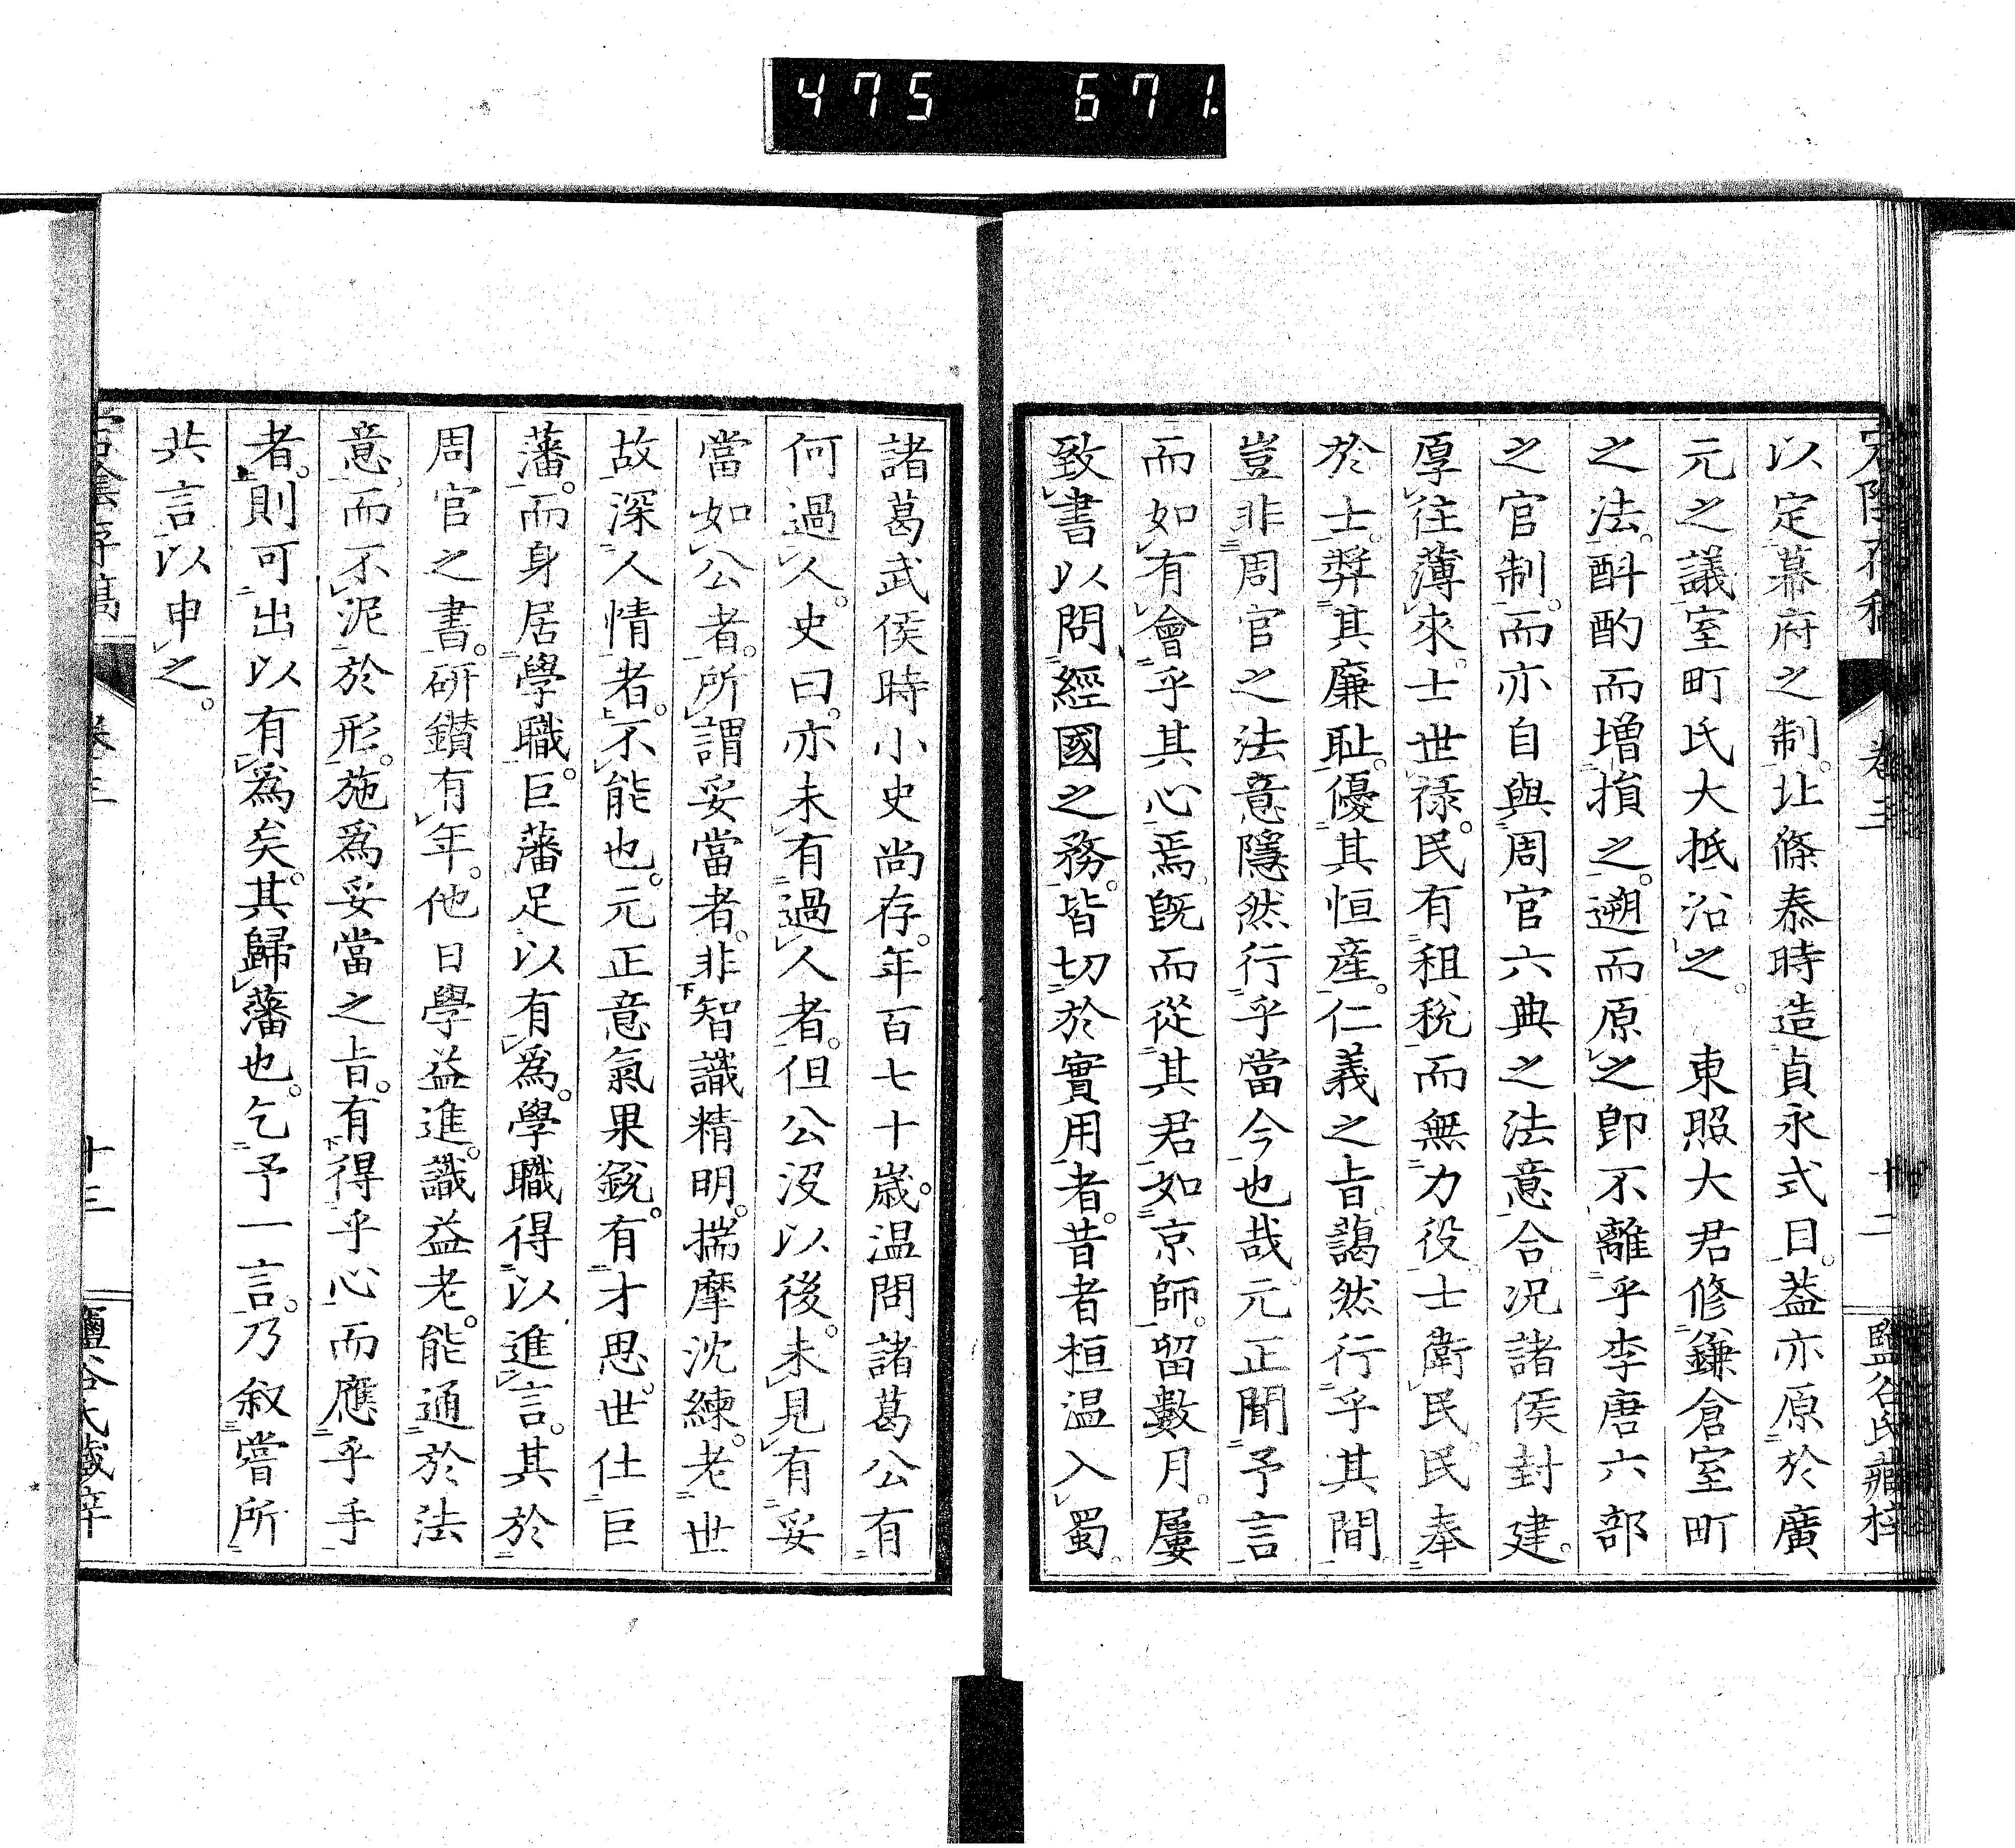 475 671.
宕陰存稿 卷三 十二 鹽谷氏藏梓
以定幕府之制。北條泰時造貞永式目。蓋亦原於廣
元之議。室町氏大抵沿之。 東照大君修鎌倉室町
之法。酙酌而增損之。遡而原之。卽不離乎李唐六部
之官制。而亦自與周官六典之法意合。况諸侯封建。
厚往薄來。士世祿。民有租稅而無力役。士衛民。民奉
於士。奨其廉耻。優其恒產。仁義之旨。藹然行乎其間。
豈非周官之法意隱然行乎當今也哉。元正聞予言
而如有會乎其心焉。旣而從其君如京師。留數月。屢
致書以問經國之務。皆切於實用者。昔者桓温入蜀。
諸葛武侯時小史尚存。年百七十歲。温問諸葛公有
何過人。史曰。亦未有過人者。但公沒以後。未見有妥
當如公者。所謂妥當者。非智識精明。揣摩沈練。老世
故深人情者。不能也。元正意氣果銳。有才思。世仕巨
藩。而身居學職。巨藩足以有爲。學職得以進言。其於
周官之書。研鑽有年。他日學益進。識益老。能通於法
意。而不泥於形。施爲妥當之旨。有得乎心而應乎手
者。則可出以有爲矣。其歸藩也。乞予一言。乃叙嘗所
共言以申之。
宕陰存稿 卷三 十三 鹽谷氏藏梓